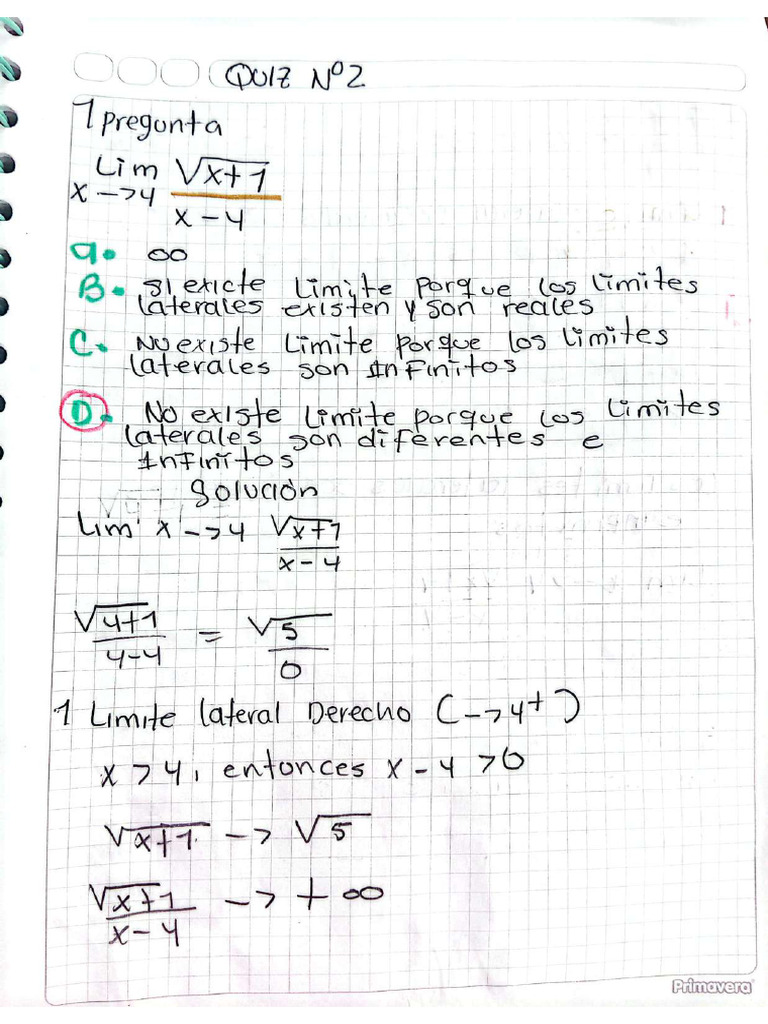 QUIZ Nº2
1 pregunta
Lim x->4 √x+1 / x-4
a. ∞
B. SI exicte Limite Porque los Limites
laterales existen y son reales
C. No existe Limite Porque los Limites
laterales son Infinitos
D. No existe Limite porque los Limites
laterales son diferentes e
Infinitos
Solución
Lim x->4 √x+1 / x-4
√4+1 / 4-4 = √5 / 0
1 Limite lateral Derecho (->4+)
x > 4, entonces x-4 >0
√x+1 -> √5
√x+1 / x-4 -> +∞
Primavera